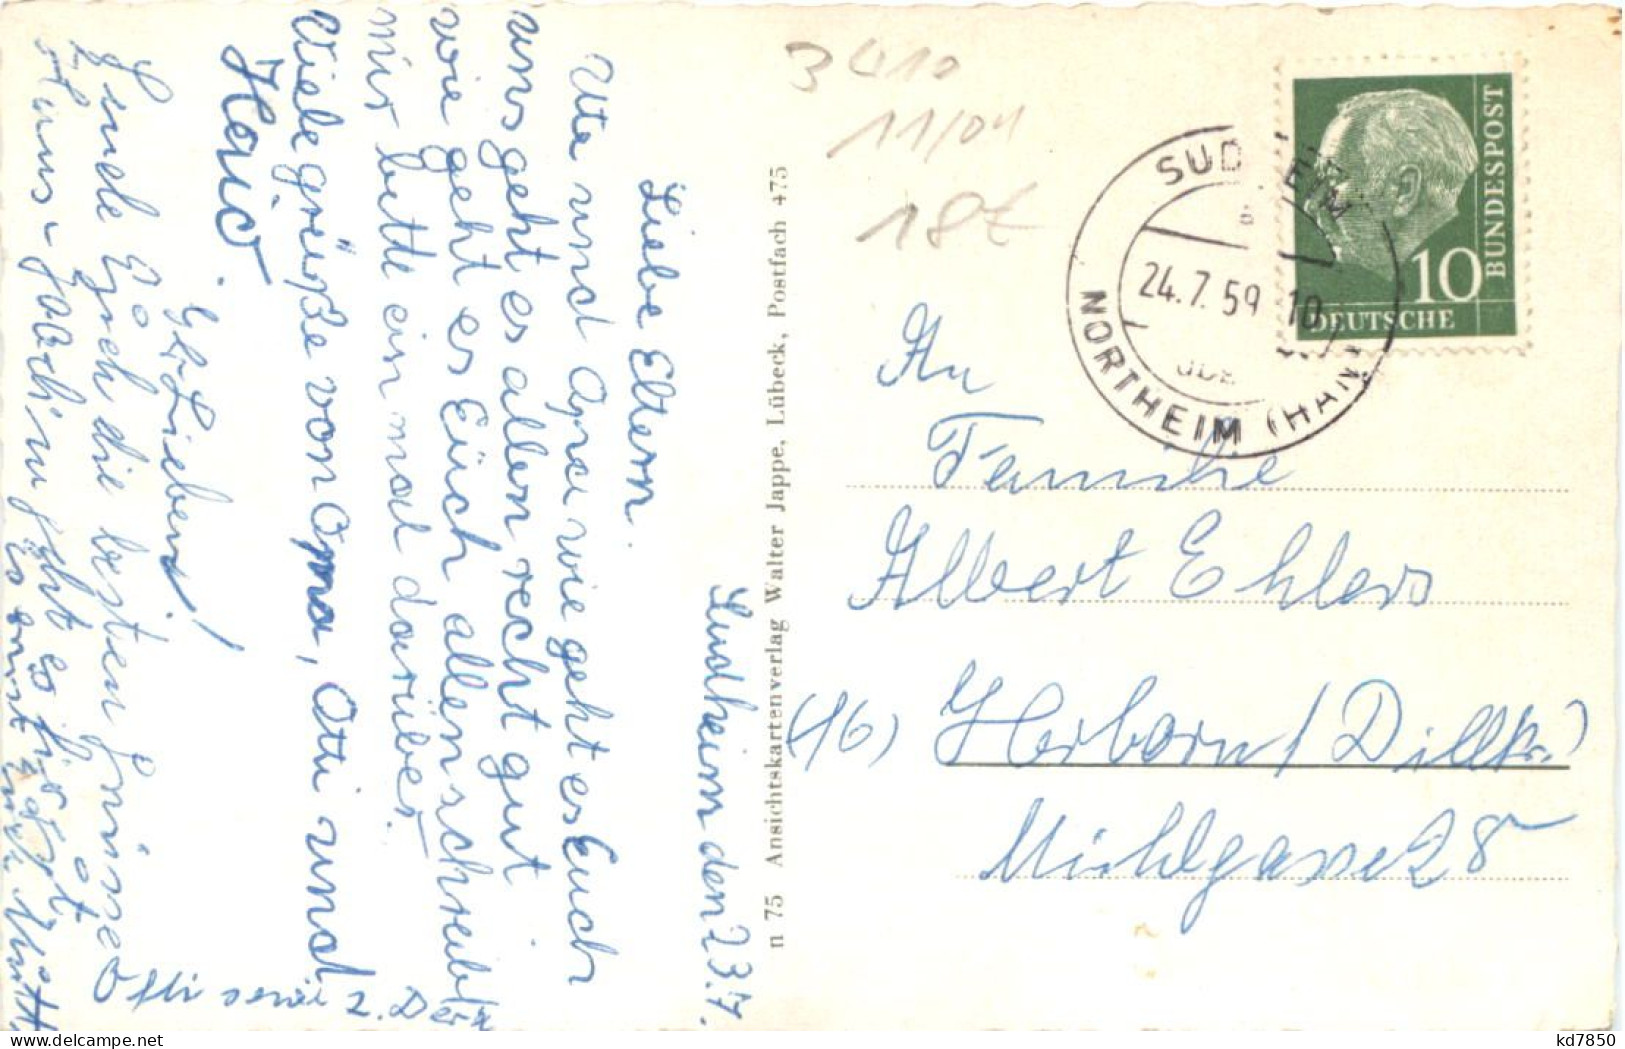 Sudheim den 23.7.
Liebe Eltern.
Ute und Opa wie geht es Euch
uns geht es allen recht gut
wie geht es Euch allen schreibt
mir bitte ein mal darüber.
Viele grüße von Oma, Otti und
Heinz.
Ihr Lieben!
Sende Euch die besten Grüsse
Hans-Joachim geht es hier gut
Otti
n 75 Ansichtskartenverlag Walter Jappe, Lübeck, Postfach 475
3410
11/04
18€
SUDHEIM
24.7.59 10
NORTHEIM (HAN
10
DEUTSCHE
BUNDESPOST
An
Familie
Albert Ehlers
(16) Herborn / Dillkr.
Mühlgasse 28
www.delcampe.net
kd7850